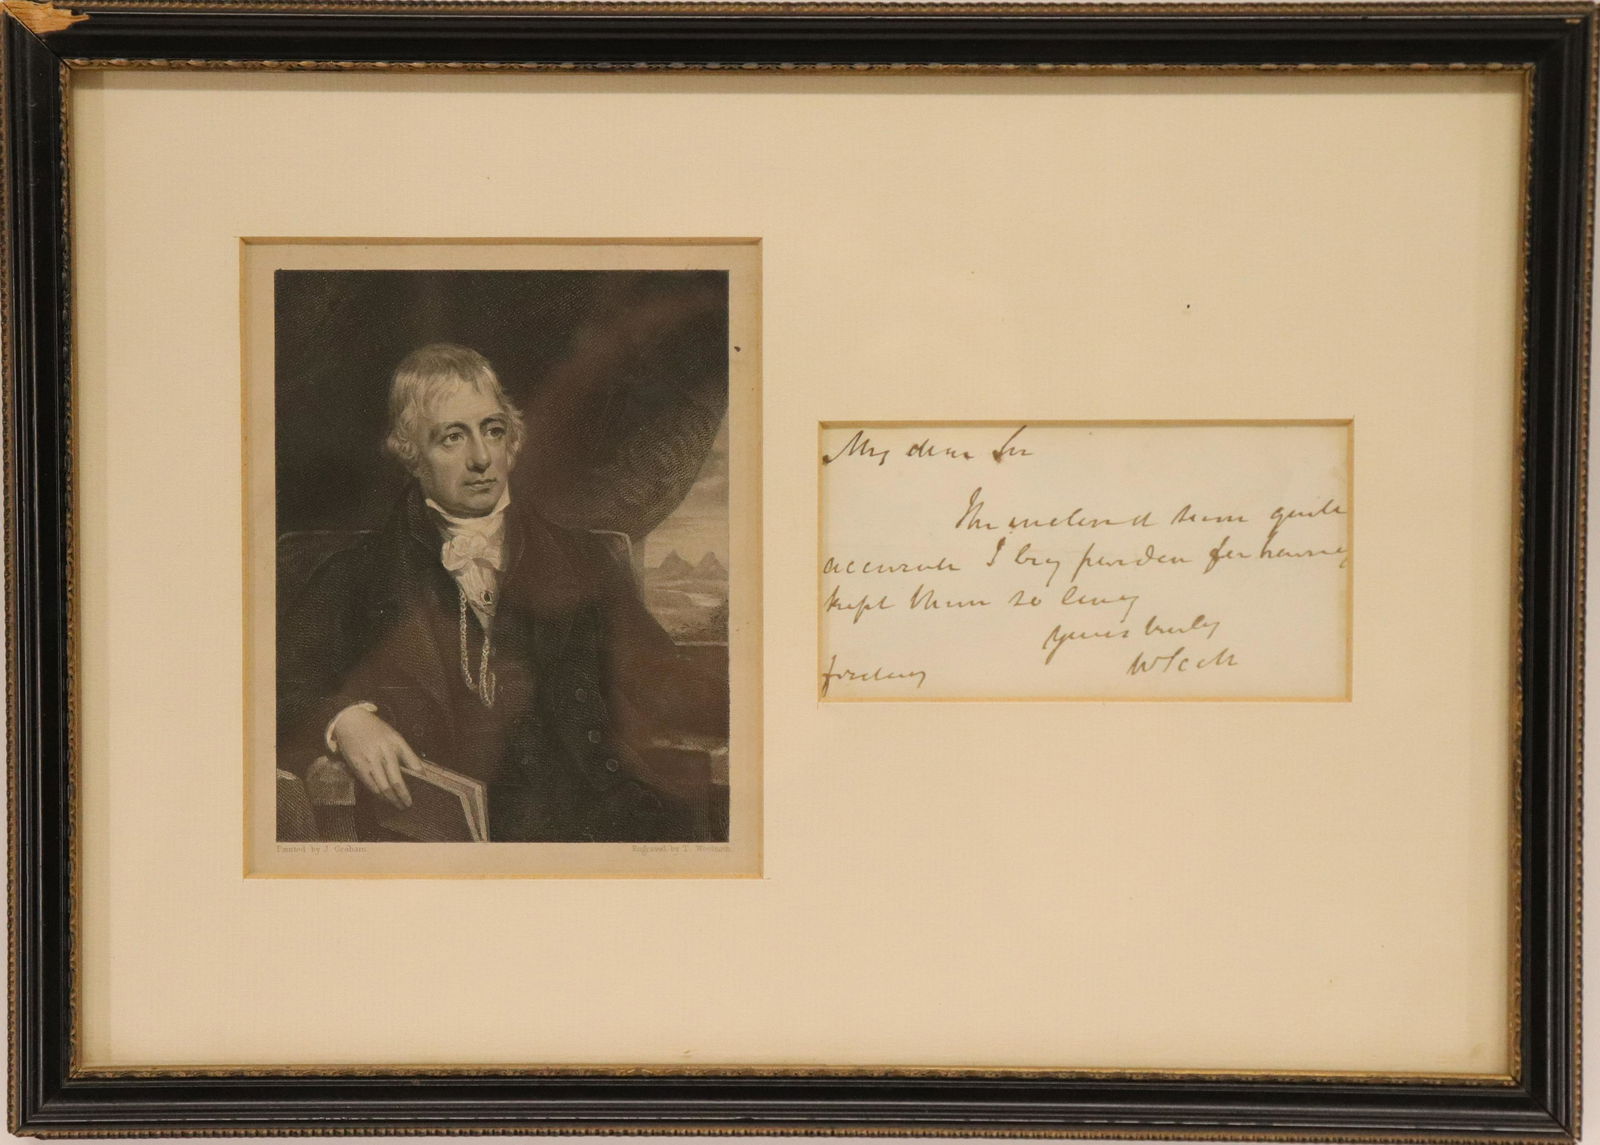 My dear Sir
The inclosed seem quite
accurate I beg pardon for having
kept them so long
yours truly
W Scott
Painted by J. Graham.
Engraved by T. Woolnoth.